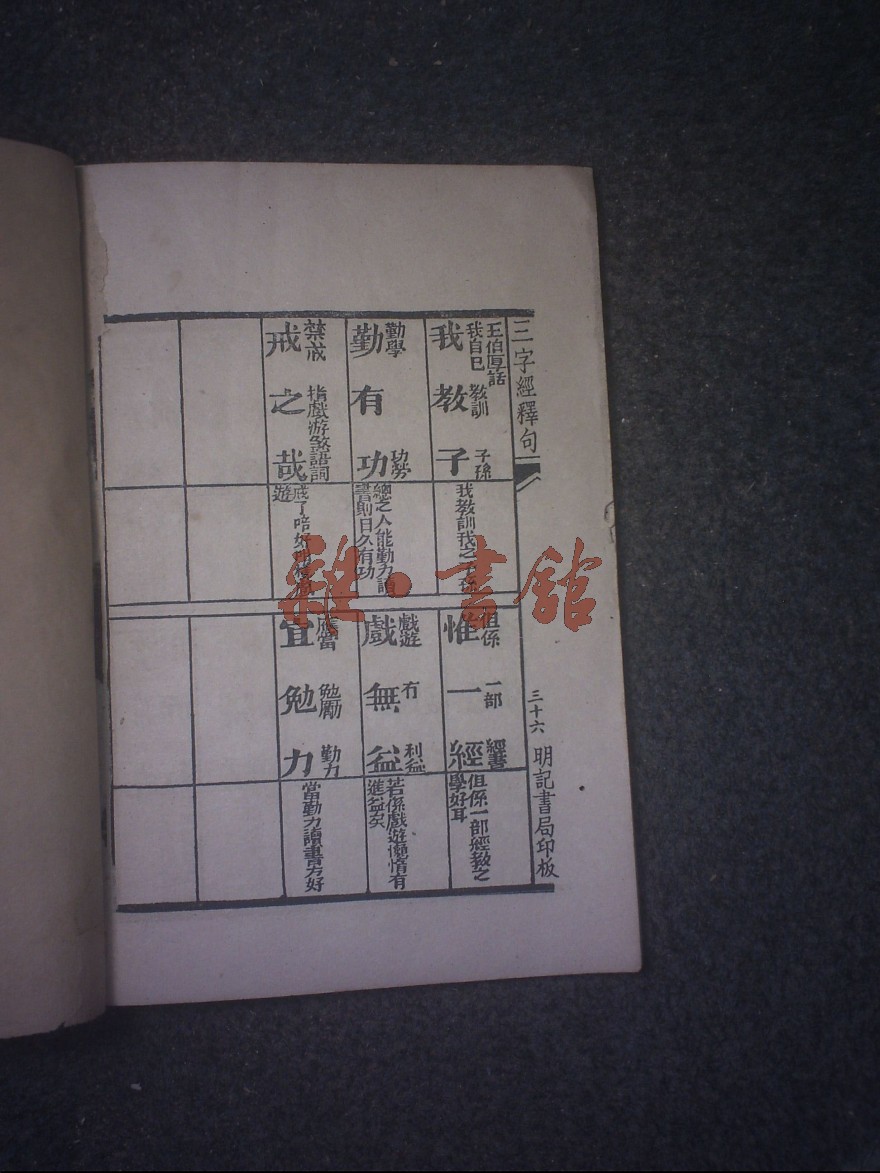 三字經釋句
三十六
明記書局印板
我教子
王伯厚話
我自己
教訓
子孫
我教訓我之子孫
惟一經
但係
一部
經書
但係一部經教之
學好耳
勤有功
勤學
功勞
總之人能勤力讀
書則日久有功
戲無益
戲遊
冇
利益
若係戲遊懶惰冇
進益矣
戒之哉
禁戒
指戲游
語詞
戒了唔好
遊
宜勉力
應當
勉勵
勤力
當勤力讀書方好
雜·書館